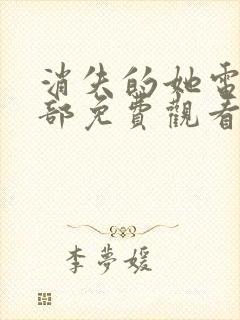 消失的她雷
部免費觀看
李夢媛